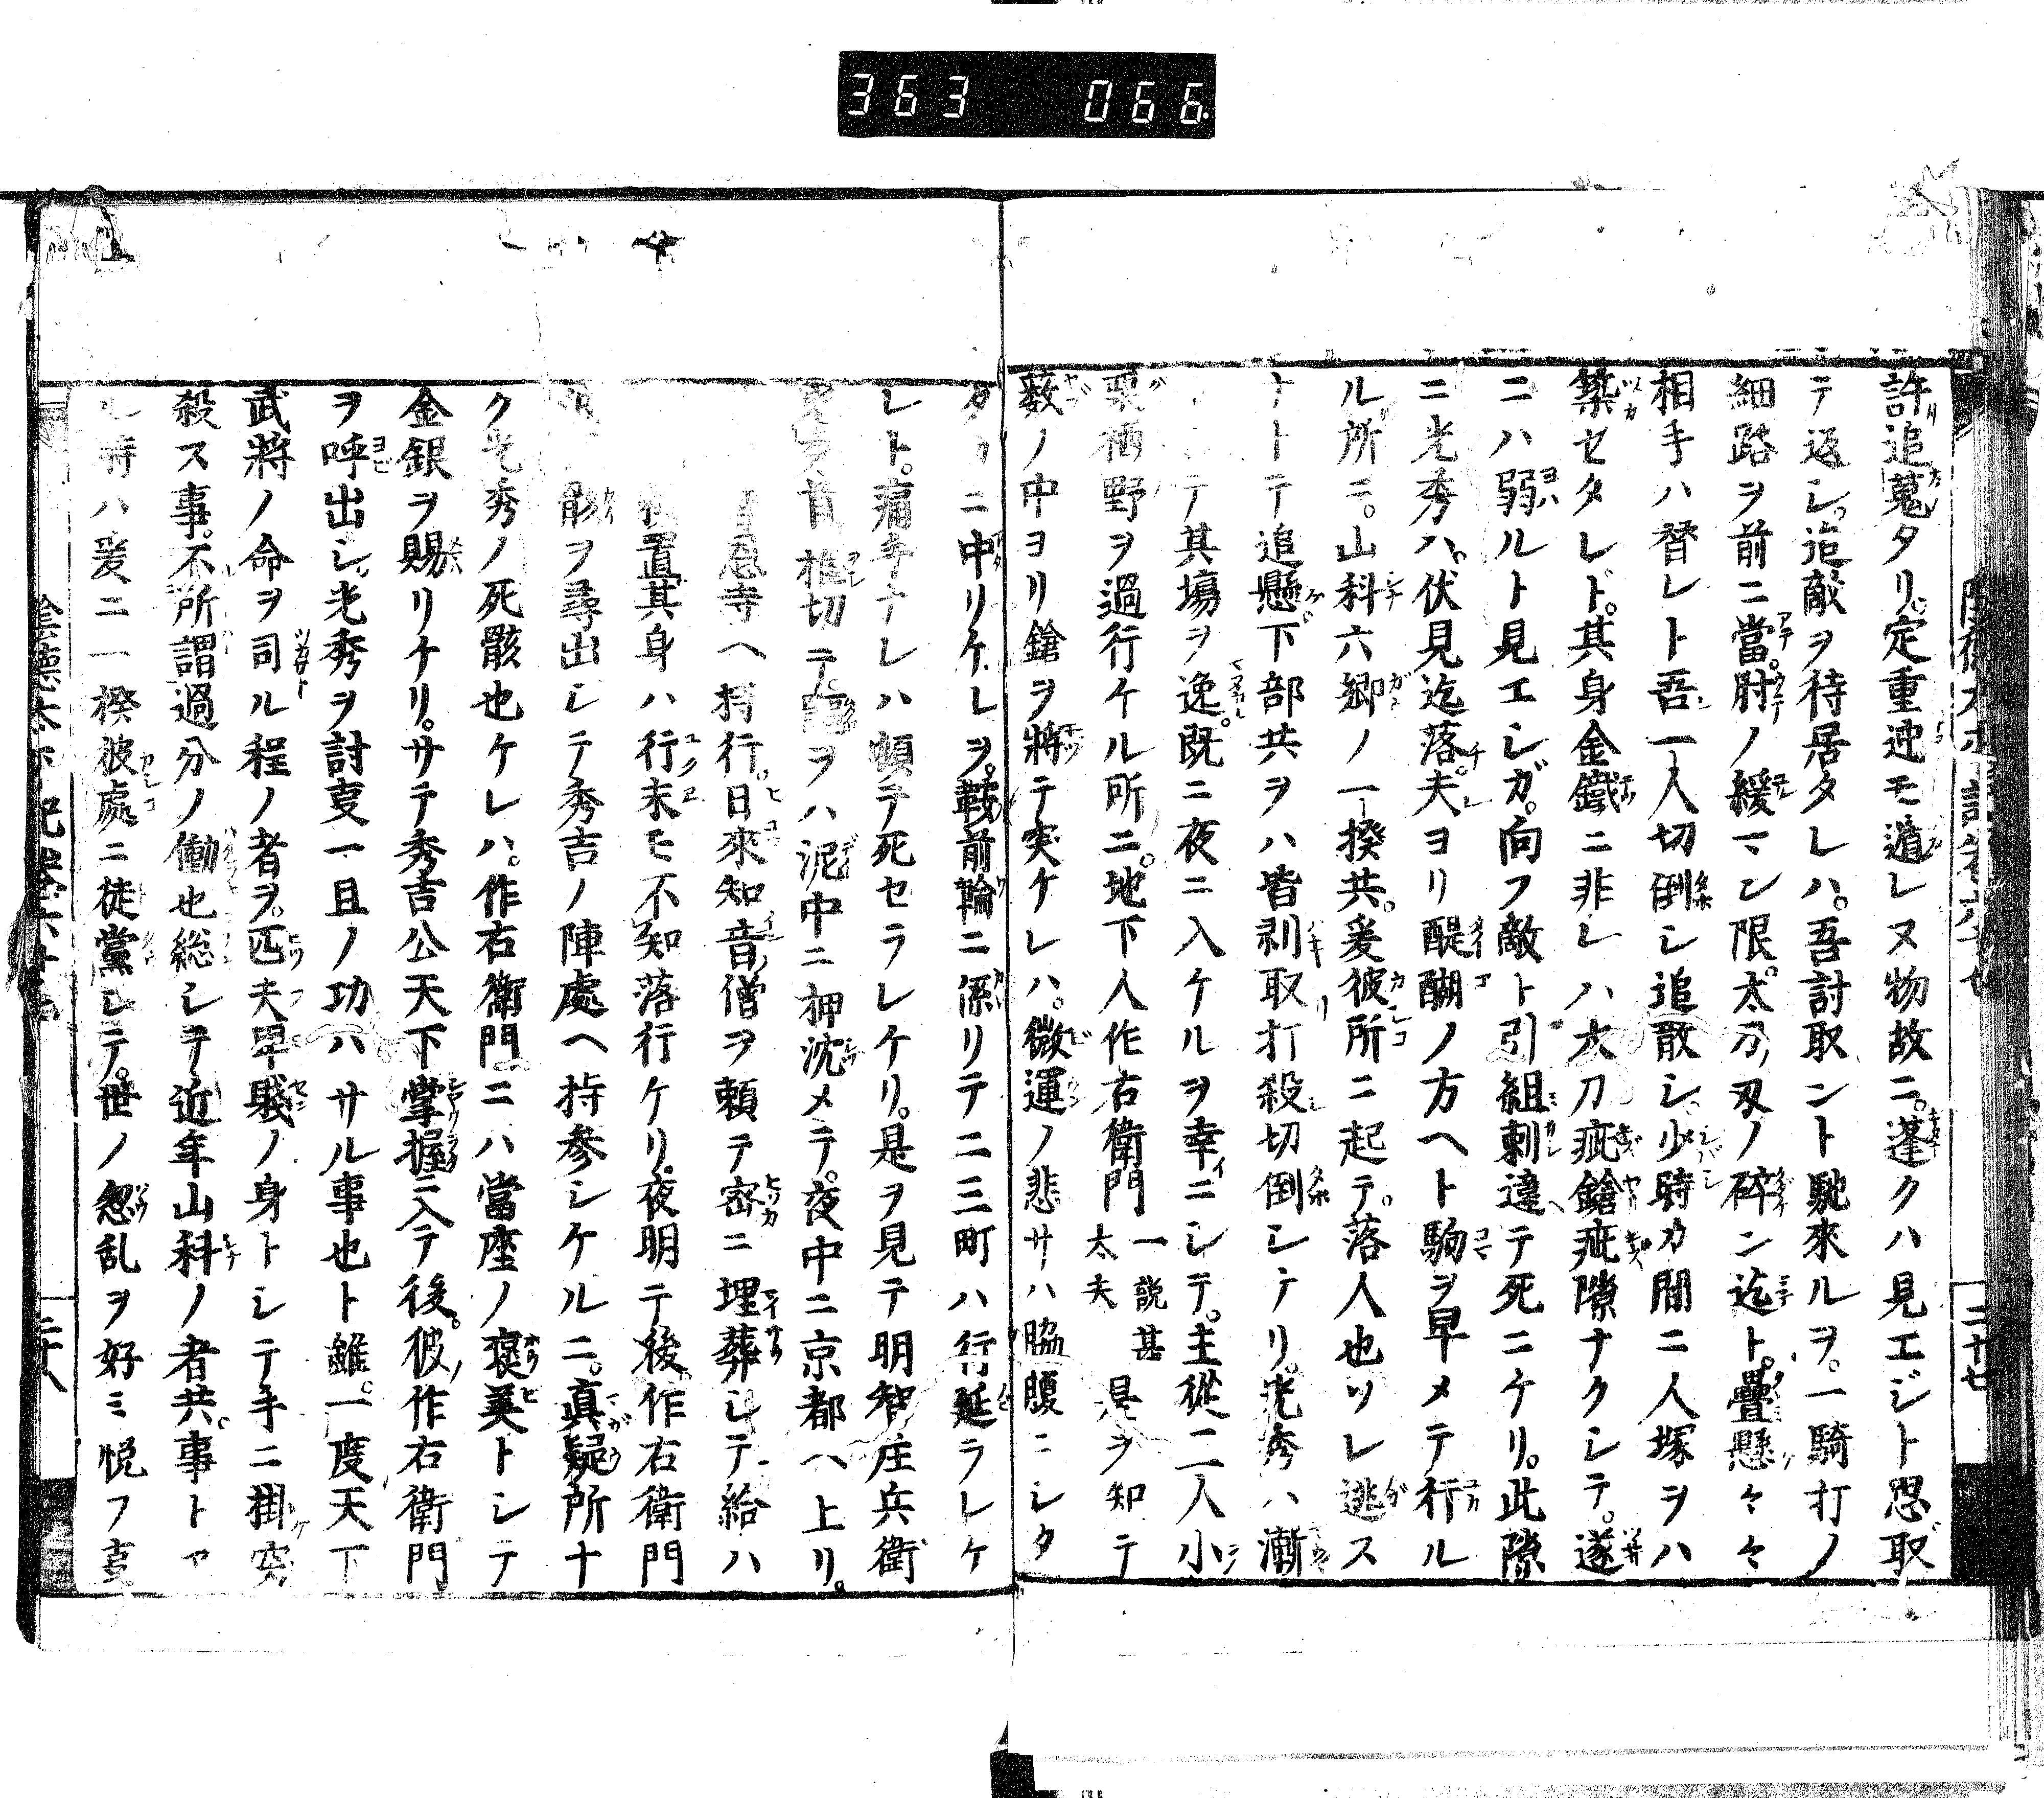 363 066
許追蒐タリ。定重迚モ遁レヌ物故ニ。蓬クハ見エジト思取
テ返シ。追敵ヲ待居タレハ。吾討取ント馳來ルヲ。一騎打ノ
細路ヲ前ニ當。肘ノ緩マン限。太刀ノ刄ノ碎ン迄ト。疊懸々々
相手ハ替レト吾一人切倒シ追散シ。少時カ間ニ人塚ヲハ
築セタレド。其身金鐵ニ非レハ太刀疵鎗疵隙ナクシテ。遂
ニハ弱ルト見エシガ。向フ敵ト引組刺違テ死ニケリ。此隙
ニ光秀ハ。伏見迄落。夫ヨリ醍醐ノ方ヘト駒ヲ早メテ行ル
ル所ニ。山科六郷ノ一揆共。爰彼所ニ起テ。落人也ソレ逃ス
ナトテ追懸。下部共ヲハ皆剥取打殺切倒シテリ。光秀ハ漸
テ其場ヲ逸。既ニ夜ニ入ケルヲ幸ニシテ。主從二人小
栗栖野ヲ過行ケル所ニ。地下人作右衛門一説甚太夫是ヲ知テ
薮ノ中ヨリ鎗ヲ將テ突ケレハ。微運ノ悲サハ脇腹ニシタ
タカニ中リケレヲ。鞍前輪ニ係リテ二三町ハ行延ラレケ
レト。痛手ナレハ頓テ死セラレケリ。是ヲ見テ明智庄兵衛
首推切テ。ヲハ泥中ニ押沈メテ。夜中ニ京都ヘ上リ。
息寺ヘ持行。日來知音ノ僧ヲ頼テ密ニ埋葬シテ給ハ
置其身ハ行末モ不知落行ケリ。夜明テ後作右衛門
骸ヲ尋出シテ秀吉ノ陣處ヘ持参シケルニ。真疑所ナ
ク光秀ノ死骸也ケレハ。作右衛門ニハ當座ノ褒美トシテ
金銀ヲ賜リケリ。サテ秀吉公天下掌握ニ入テ後。彼ノ作右衛門
ヲ呼出シ。光秀ヲ討叓一且ノ功ハサル事也ト雖。一度天下
武將ノ命ヲ司ル程ノ者ヲ。匹夫卑賤ノ身トシテ手ニ掛突
殺ス事。不所謂過分ノ働也総シテ近年山科ノ者共。事トア
ル時ハ爰ニ一揆彼處ニ徒黨シテ。世ノ忽乱ヲ好ミ悦フ叓
二十七
二十八